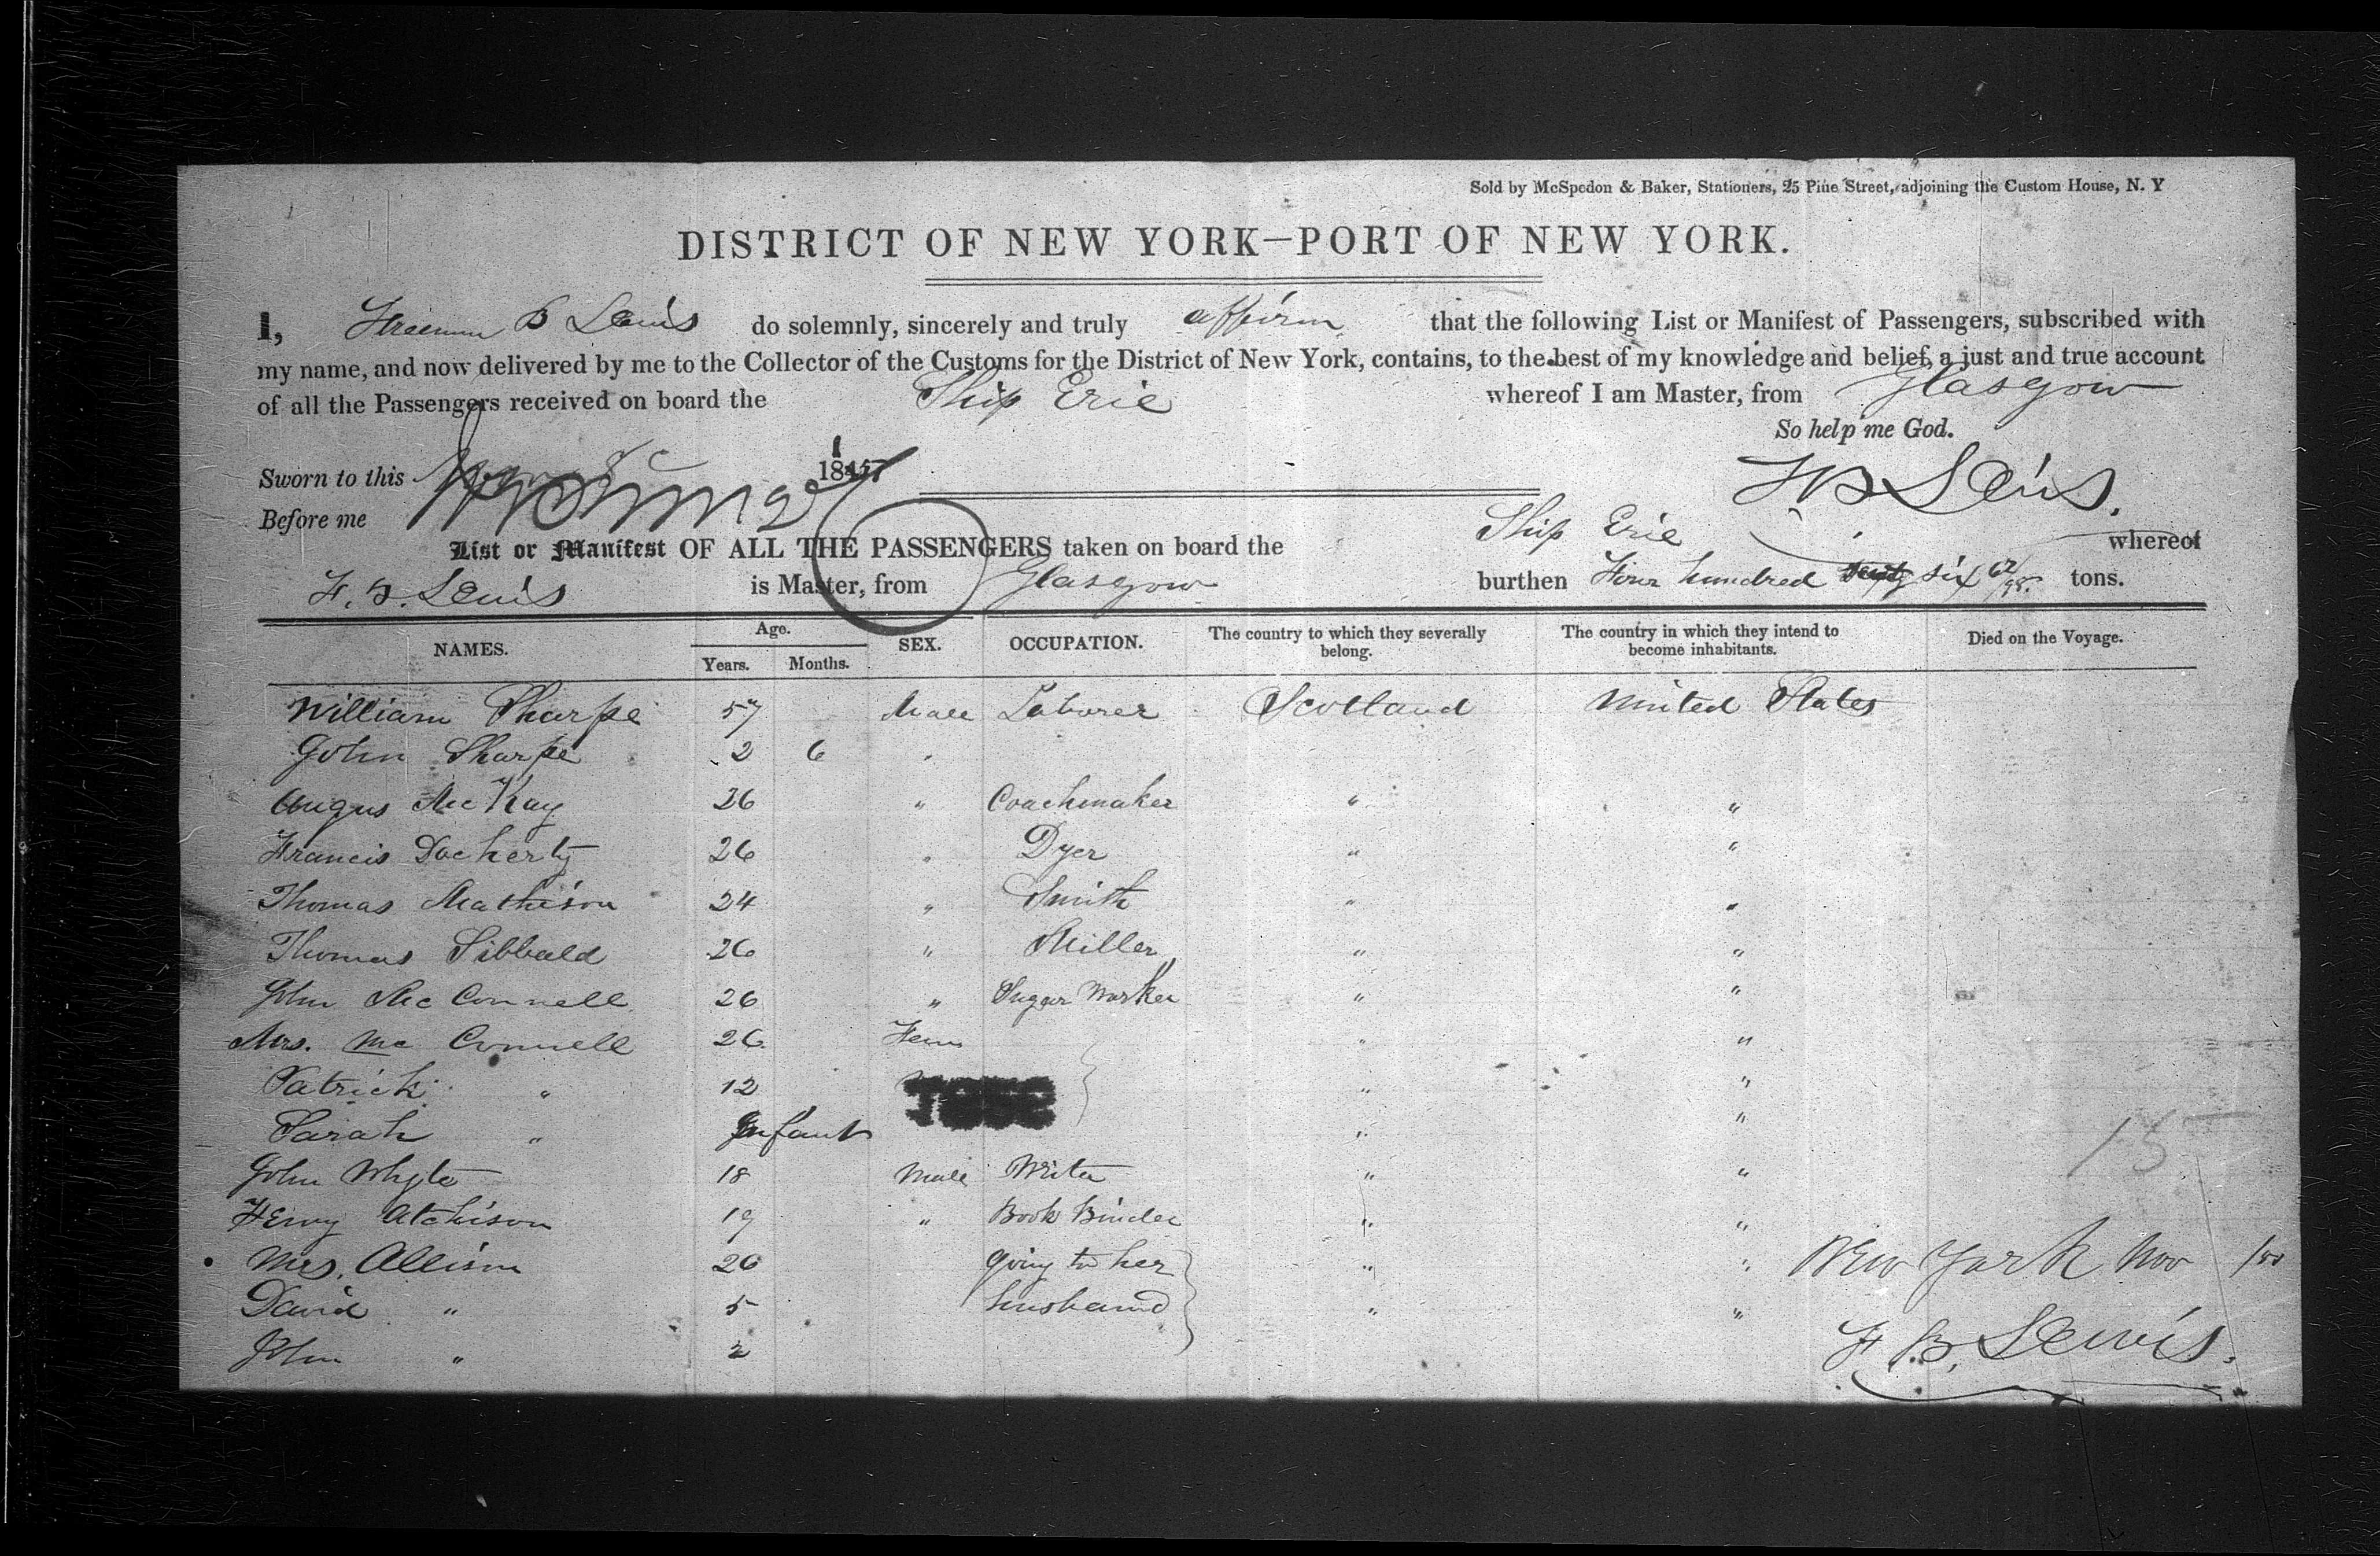 Sold by McSpedon & Baker, Stationers, 25 Pine Street, adjoining the Custom House, N. Y
DISTRICT OF NEW YORK—PORT OF NEW YORK.
I, Freeman B Lewis do solemnly, sincerely and truly affirm that the following List or Manifest of Passengers, subscribed with
my name, and now delivered by me to the Collector of the Customs for the District of New York, contains, to the best of my knowledge and belief, a just and true account
of all the Passengers received on board the Ship Erie whereof I am Master, from Glasgow
So help me God.
Sworn to this 184
F B Lewis.
Before me
List or Manifest OF ALL THE PASSENGERS taken on board the Ship Erie whereof
F. B. Lewis is Master, from Glasgow burthen Four hundred six 62/95 tons.
NAMES. Age. Years. Months. SEX. OCCUPATION. The country to which they severally belong. The country in which they intend to become inhabitants. Died on the Voyage.
William Sharpe 57 Male Laborer Scotland United States
John Sharpe 2 6 "
Angus McKay 26 " Coachmaker " "
Francis Docherty 26 " Dyer " "
Thomas Mathison 24 " Smith " "
Thomas Sibbald 26 " Miller " "
John McConnell 26 " Sugar Worker " "
Mrs. McConnell 26 Fem " "
Patrick " 12 " "
Sarah " Infant " "
John Whyte 18 Male Writer " "
Henry Atchison 19 " Book Binder " "
Mrs. Allison 26 going to her " "
David " 5 husband " "
John " 2
15
New York Nov
F. B. Lewis.